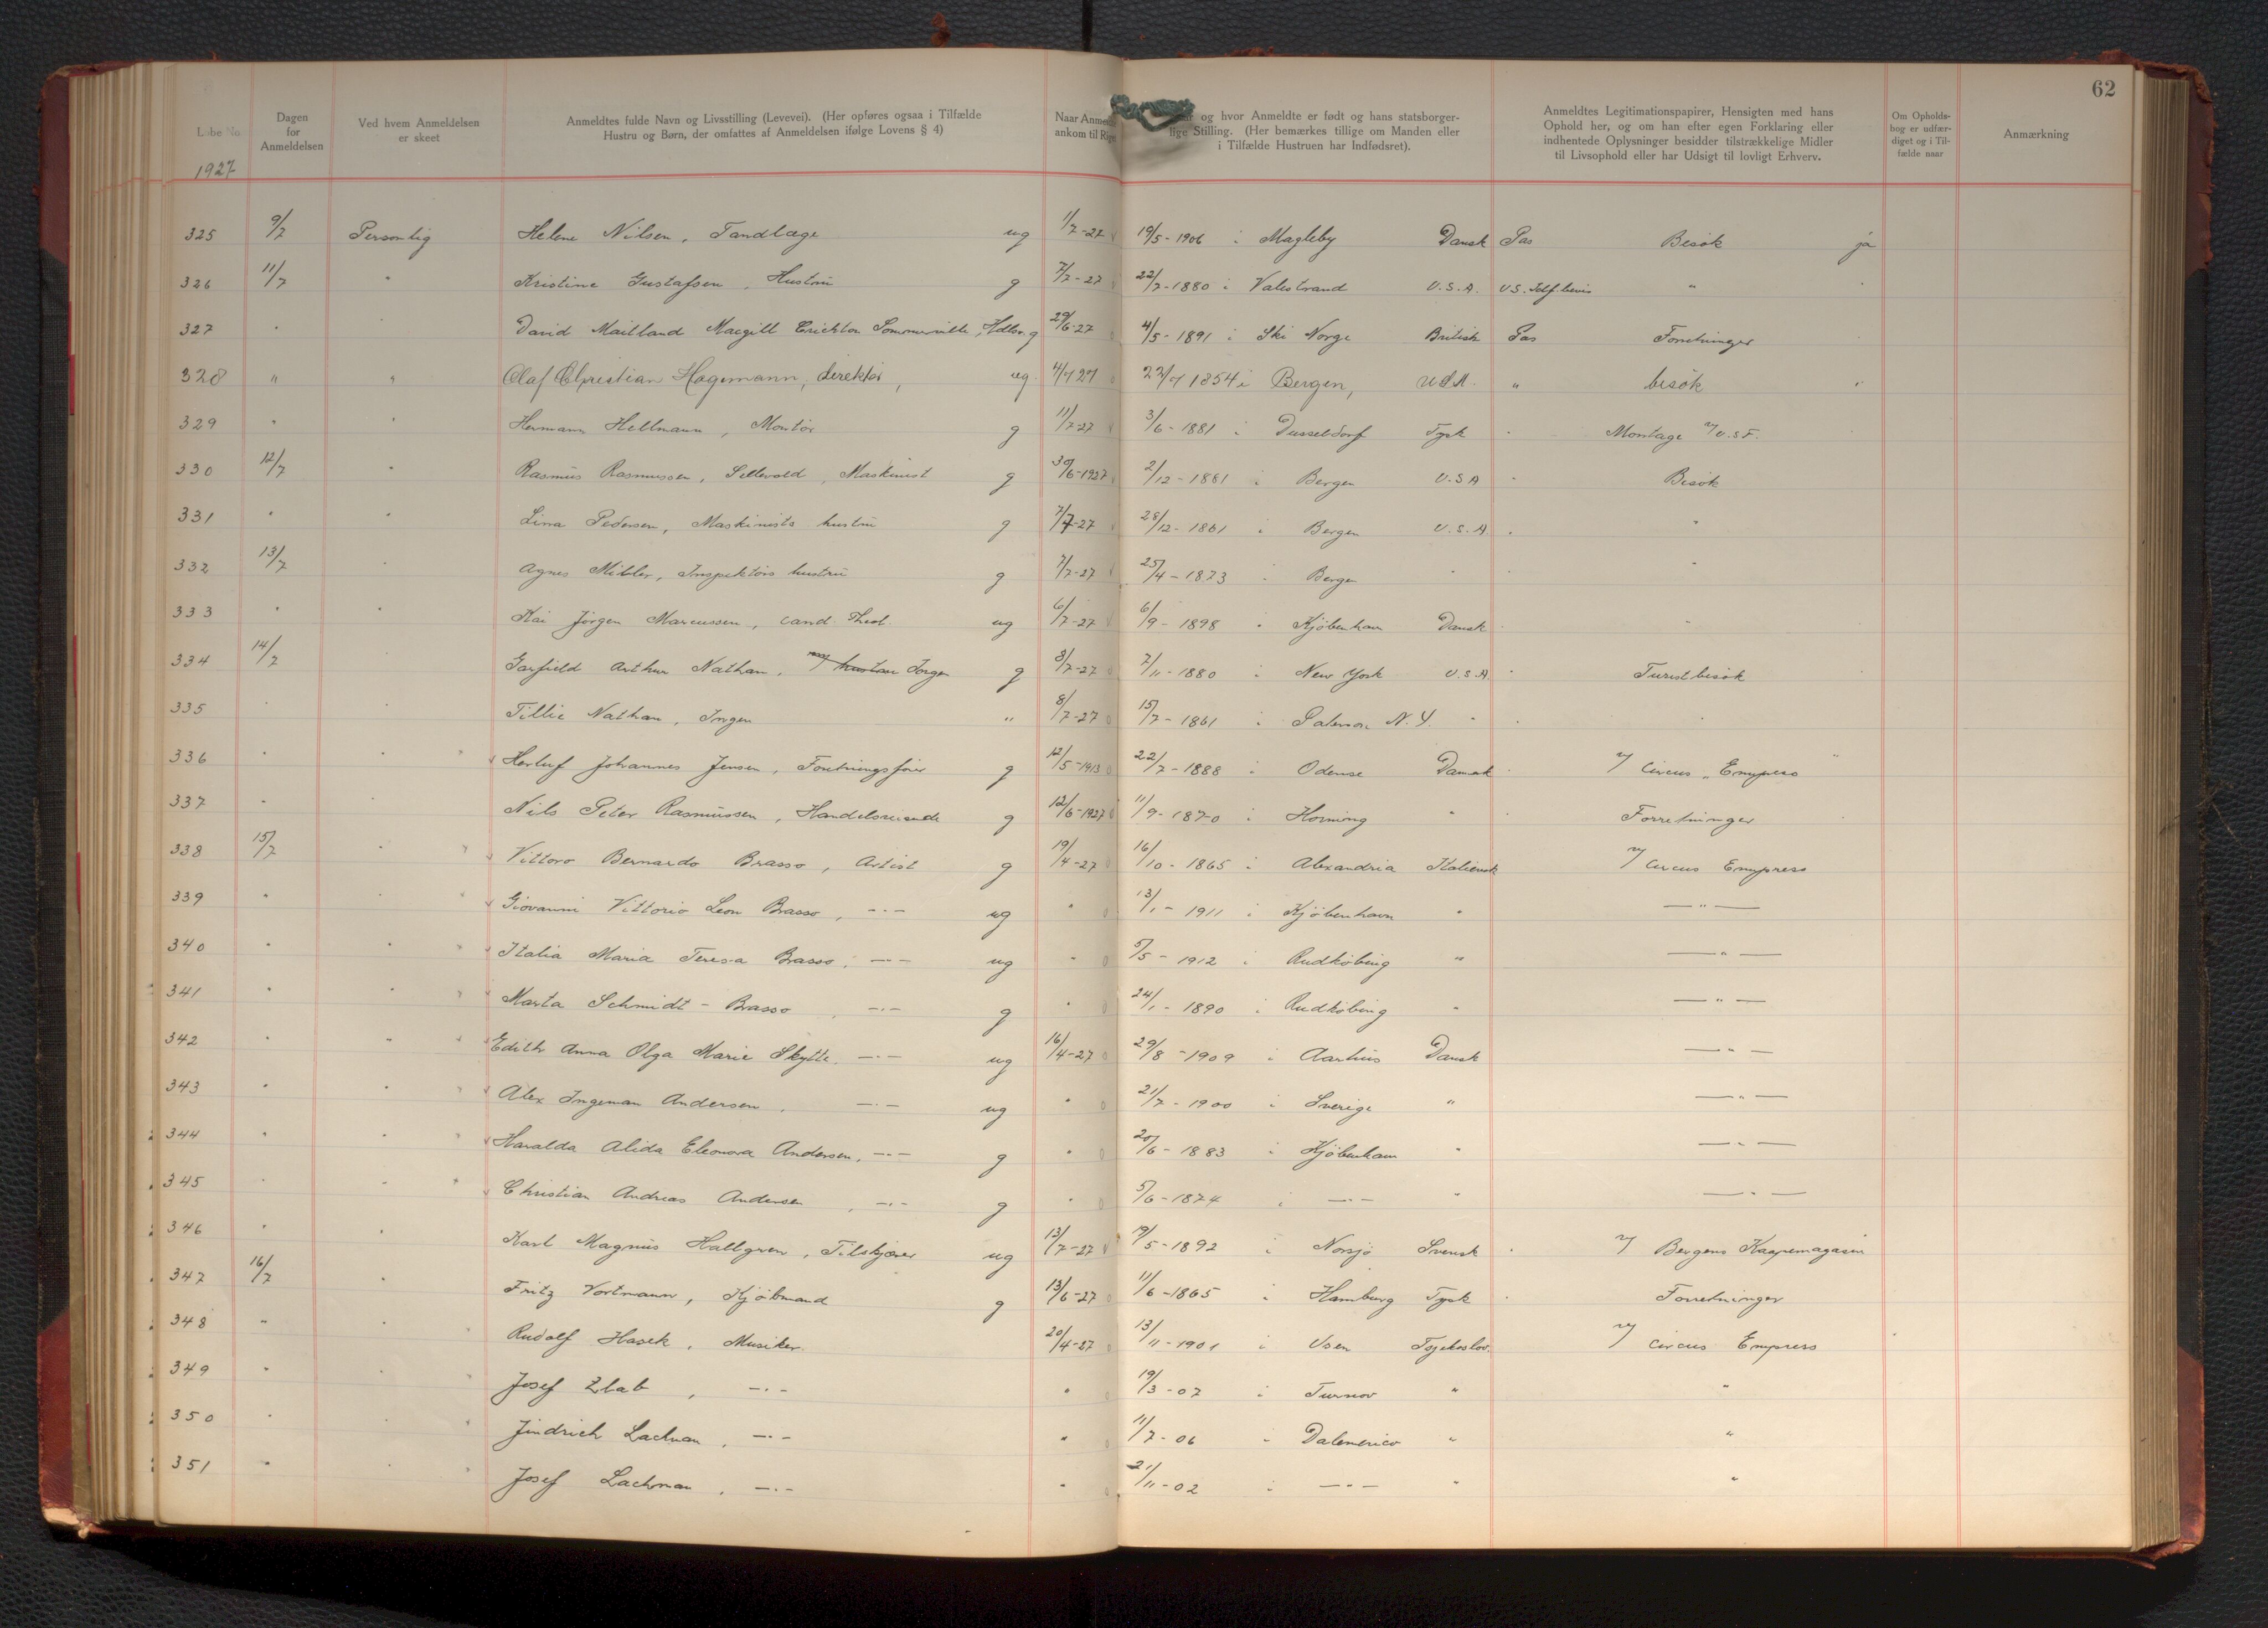 62
Løbe No.
1927
Dagen for Anmeldelsen
Ved hvem Anmeldelsen er skeet
Anmeldtes fulde Navn og Livsstilling (Levevei). (Her opføres ogsaa i Tilfælde Hustru og Børn, der omfattes af Anmeldelsen ifølge Lovens § 4)
Naar Anmeldte ankom til Riget
og hvor Anmeldte er født og hans statsborgerlige Stilling. (Her bemærkes tillige om Manden eller i Tilfælde Hustruen har Indfødsret).
Anmeldtes Legitimationspapirer, Hensigten med hans Ophold her, og om han efter egen Forklaring eller indhentede Oplysninger besidder tilstrækkelige Midler til Livsophold eller har Udsigt til lovligt Erhverv.
Om Opholdsbog er udfærdiget og i Tilfælde naar
Anmærkning
325 9/7 Personlig Helene Nilsen, Tandlæge ug 1/7-27 19/5-1906 i Magleby Dansk Pas Besøk ja
326 11/7 " Kristine Gustafsen, Hustru g 7/7-27 22/7-1880 i Valestrand U.S.A. U.S. Idf.bevis "
327 " " David Maitland Macgill Crichton Sommerville, Hdlm. g 29/6-27 4/5-1891 i Ski Norge British Pas Forretninger
328 " " Olaf Christian Hagemann, direktør, ug. 4/7 27 22/7 1854 i Bergen, USA. " besøk "
329 " " Hermann Hellmann, Montør g 11/7-27 3/6-1881 i Dusseldorf Tysk " Montage v/ U.S.F.
330 12/7 " Rasmus Rasmussen, Sellevold, Maskinist g 30/6-1927 2/12-1881 i Bergen U.S.A " Besøk
331 " " Lina Pedersen, Maskinists hustru g 7/7-27 28/12-1861 i Bergen U.S.A. " "
332 13/7 " Agnes Mibler, Inspektørs hustru g 7/7-27 25/4-1873 i Bergen " " "
333 " " Kai Jørgen Marcussen, cand. Theol. ug 6/7-27 6/9-1898 " Kjøbenhavn Dansk " "
334 14/7 Garfield Arthur Nathan, m/ hustru Ingen g 8/7-27 7/11-1880 i New York U.S.A " Turistbesøk
335 " Tillie Nathan, Ingen " 8/7-27 15/7-1881 i Paterson N.Y. " " "
336 " " Herluf Johannes Jensen, Forretningsfører g 12/5-1913 22/7-1888 i Odense Dansk " v/ Circus "Empress"
337 " " Nils Peter Rasmussen, Handelsreisende g 12/6-1927 11/9-1870 i Horning " " Forretninger
338 15/7 " Vittoro Bernardo Brasso, Artist g 19/4-27 16/10-1865 i Alexandria Italiensk v/ Circus Empress
339 " Giovanni Vittorio Leon Brasso, -"- ug " 13/1-1911 i Kjøbenhavn " -"-
340 " " Italia Maria Teresa Brasso, -"- ug " 5/5-1912 i Rudkøbing " -"-
341 " " Marta Schmidt-Brasso, -"- g " 24/1-1890 i Rudkøbing " -"-
342 " " Edith Anna Olga Marie Skytte. -"- ug 16/4-27 29/8-1909 i Aarhus Dansk -"-
343 " " Alex Ingeman Andersen, -"- ug " 21/7-1900 i Sverige " -"-
344 " " Haralda Alida Eleonora Andersen, -"- g " 20/6-1883 i Kjøbenhavn " -"-
345 " " Christian Andreas Andersen, -"- g " 5/6-1874 i -"- " -"-
346 " " Karl Magnus Hallgren, Tilskjærer ug 13/7-27 19/5-1892 i Norsjø Svensk " v/ Bergens Kaapemagasin
347 16/7 " Fritz Vortmann, Kjøbmand g 13/6-27 11/6-1865 i Hamburg Tysk " Forretninger
348 " " Rudolf Hasek, Musiker. 20/4-27 13/11-1901 i Usen Tsjekoslov. v/ Circus Empress
349 " Josef Zlab, -"- " 19/3-07 i Turnov " "
350 " " Jindrich Lachman, -"- " 11/7-06 " Dalemerico " "
351 " " Josef Lachman, -"- " 21/11-02 i -"- " "